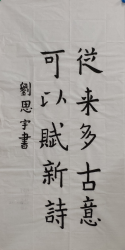 從来多古意
可以賦新詩
劉恩宇書